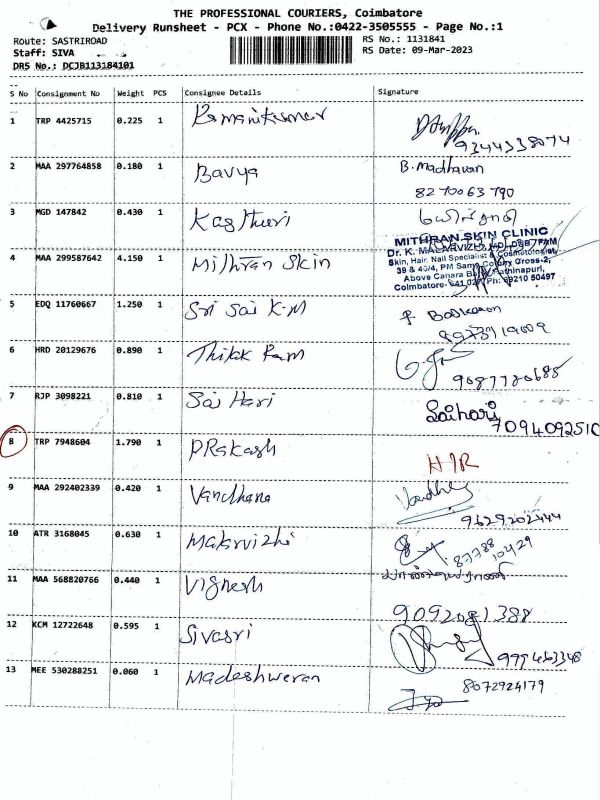 THE PROFESSIONAL COURIERS, Coimbatore
Delivery Runsheet - PCX - Phone No.:0422-3505555 - Page No.:1
Route: SASTRIROAD
RS No.: 1131841
Staff: SIVA
RS Date: 09-Mar-2023
DRS No.: DCJB113184101
S No Consignment No Weight PCS Consignee Details Signature
1 TRP 4425715 0.225 1
9344338074
2 MAA 297764858 0.180 1 Bavya B. Madhavan
8270063790
3 MGD 147842 0.430 1 Kasthuri
MITHRAN SKIN CLINIC
Dr. K. MALARVIZHI
Skin, Hair, Nail Specialist & Cosmetologist
39 & 40/4, PM Samy Colony Cross-2,
Above Canara
Coimbatore-641 027 Ph: 89210 50497
4 MAA 299587642 4.150 1 Mithran Skin
5 EDQ 11760667 1.250 1 Sri Sai K-M
6 HRD 20129676 0.890 1 Thikk Ram
9087780688
7 RJP 3098221 0.810 1 Sai Hari Saihari
7094092510
8 TRP 7948604 1.790 1 PRakash
9 MAA 292402339 0.420 1 Vandhana
9629202444
10 ATR 3168045 0.630 1 Malarvizhi
87788 10429
11 MAA 568820766 0.440 1 Vignesh
9092081388
12 KCM 12722648 0.595 1 Sivasri
13 MEE 530288251 0.060 1 Madeshweran
8072924179